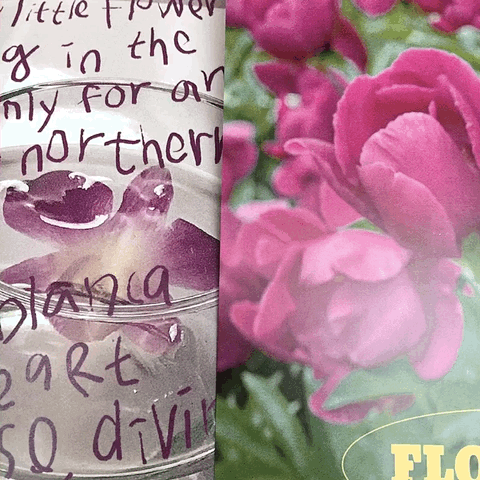 little flower
g in the
nly for an
northern
blanca
eart
so divin
FLO